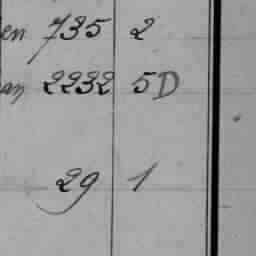 en 735 2
an 2232 5D
29 1